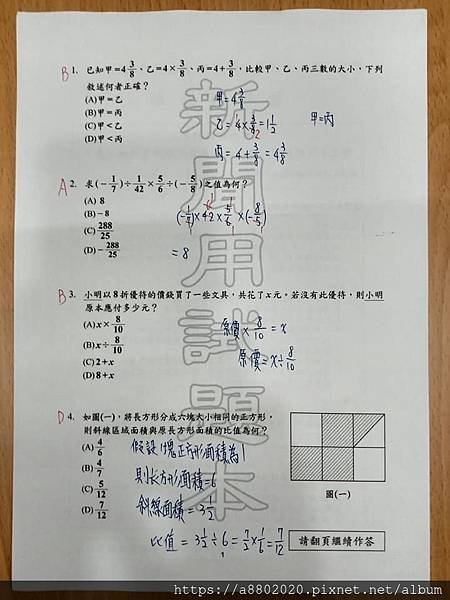 B 1. 已知甲=4 3/8、乙=4×3/8、丙=4+3/8,比較甲、乙、丙三數的大小,下列
敘述何者正確?
(A)甲=乙
(B)甲=丙
(C)甲<乙
(D)甲<丙
甲=4 3/8
乙=4×3/8=1 1/2
甲=丙
丙=4+3/8=4 3/8
A 2. 求(-1/7)÷1/42×5/6÷(-5/8)之值為何?
(A) 8
(B)-8
(C) 288/25
(D)-288/25
(-1/7)×42×5/6×(-8/5)
=8
B 3. 小明以8折優待的價錢買了一些文具,共花了x元。若沒有此優待,則小明
原本應付多少元?
(A)x×8/10
(B)x÷8/10
(C)2+x
(D)8+x
原價×8/10=x
原價=x÷8/10
D 4. 如圖(一),將長方形分成六塊大小相同的正方形,
則斜線區域面積與原長方形面積的比值為何?
(A) 4/6
(B) 4/7
(C) 5/12
(D) 7/12
假設1塊正方形面積為1
則長方形面積=6
斜線面積=3 1/2
比值=3 1/2÷6=7/2×1/6=7/12
圖(一)
請翻頁繼續作答
新聞用試題本
https://a8802020.pixnet.net/album